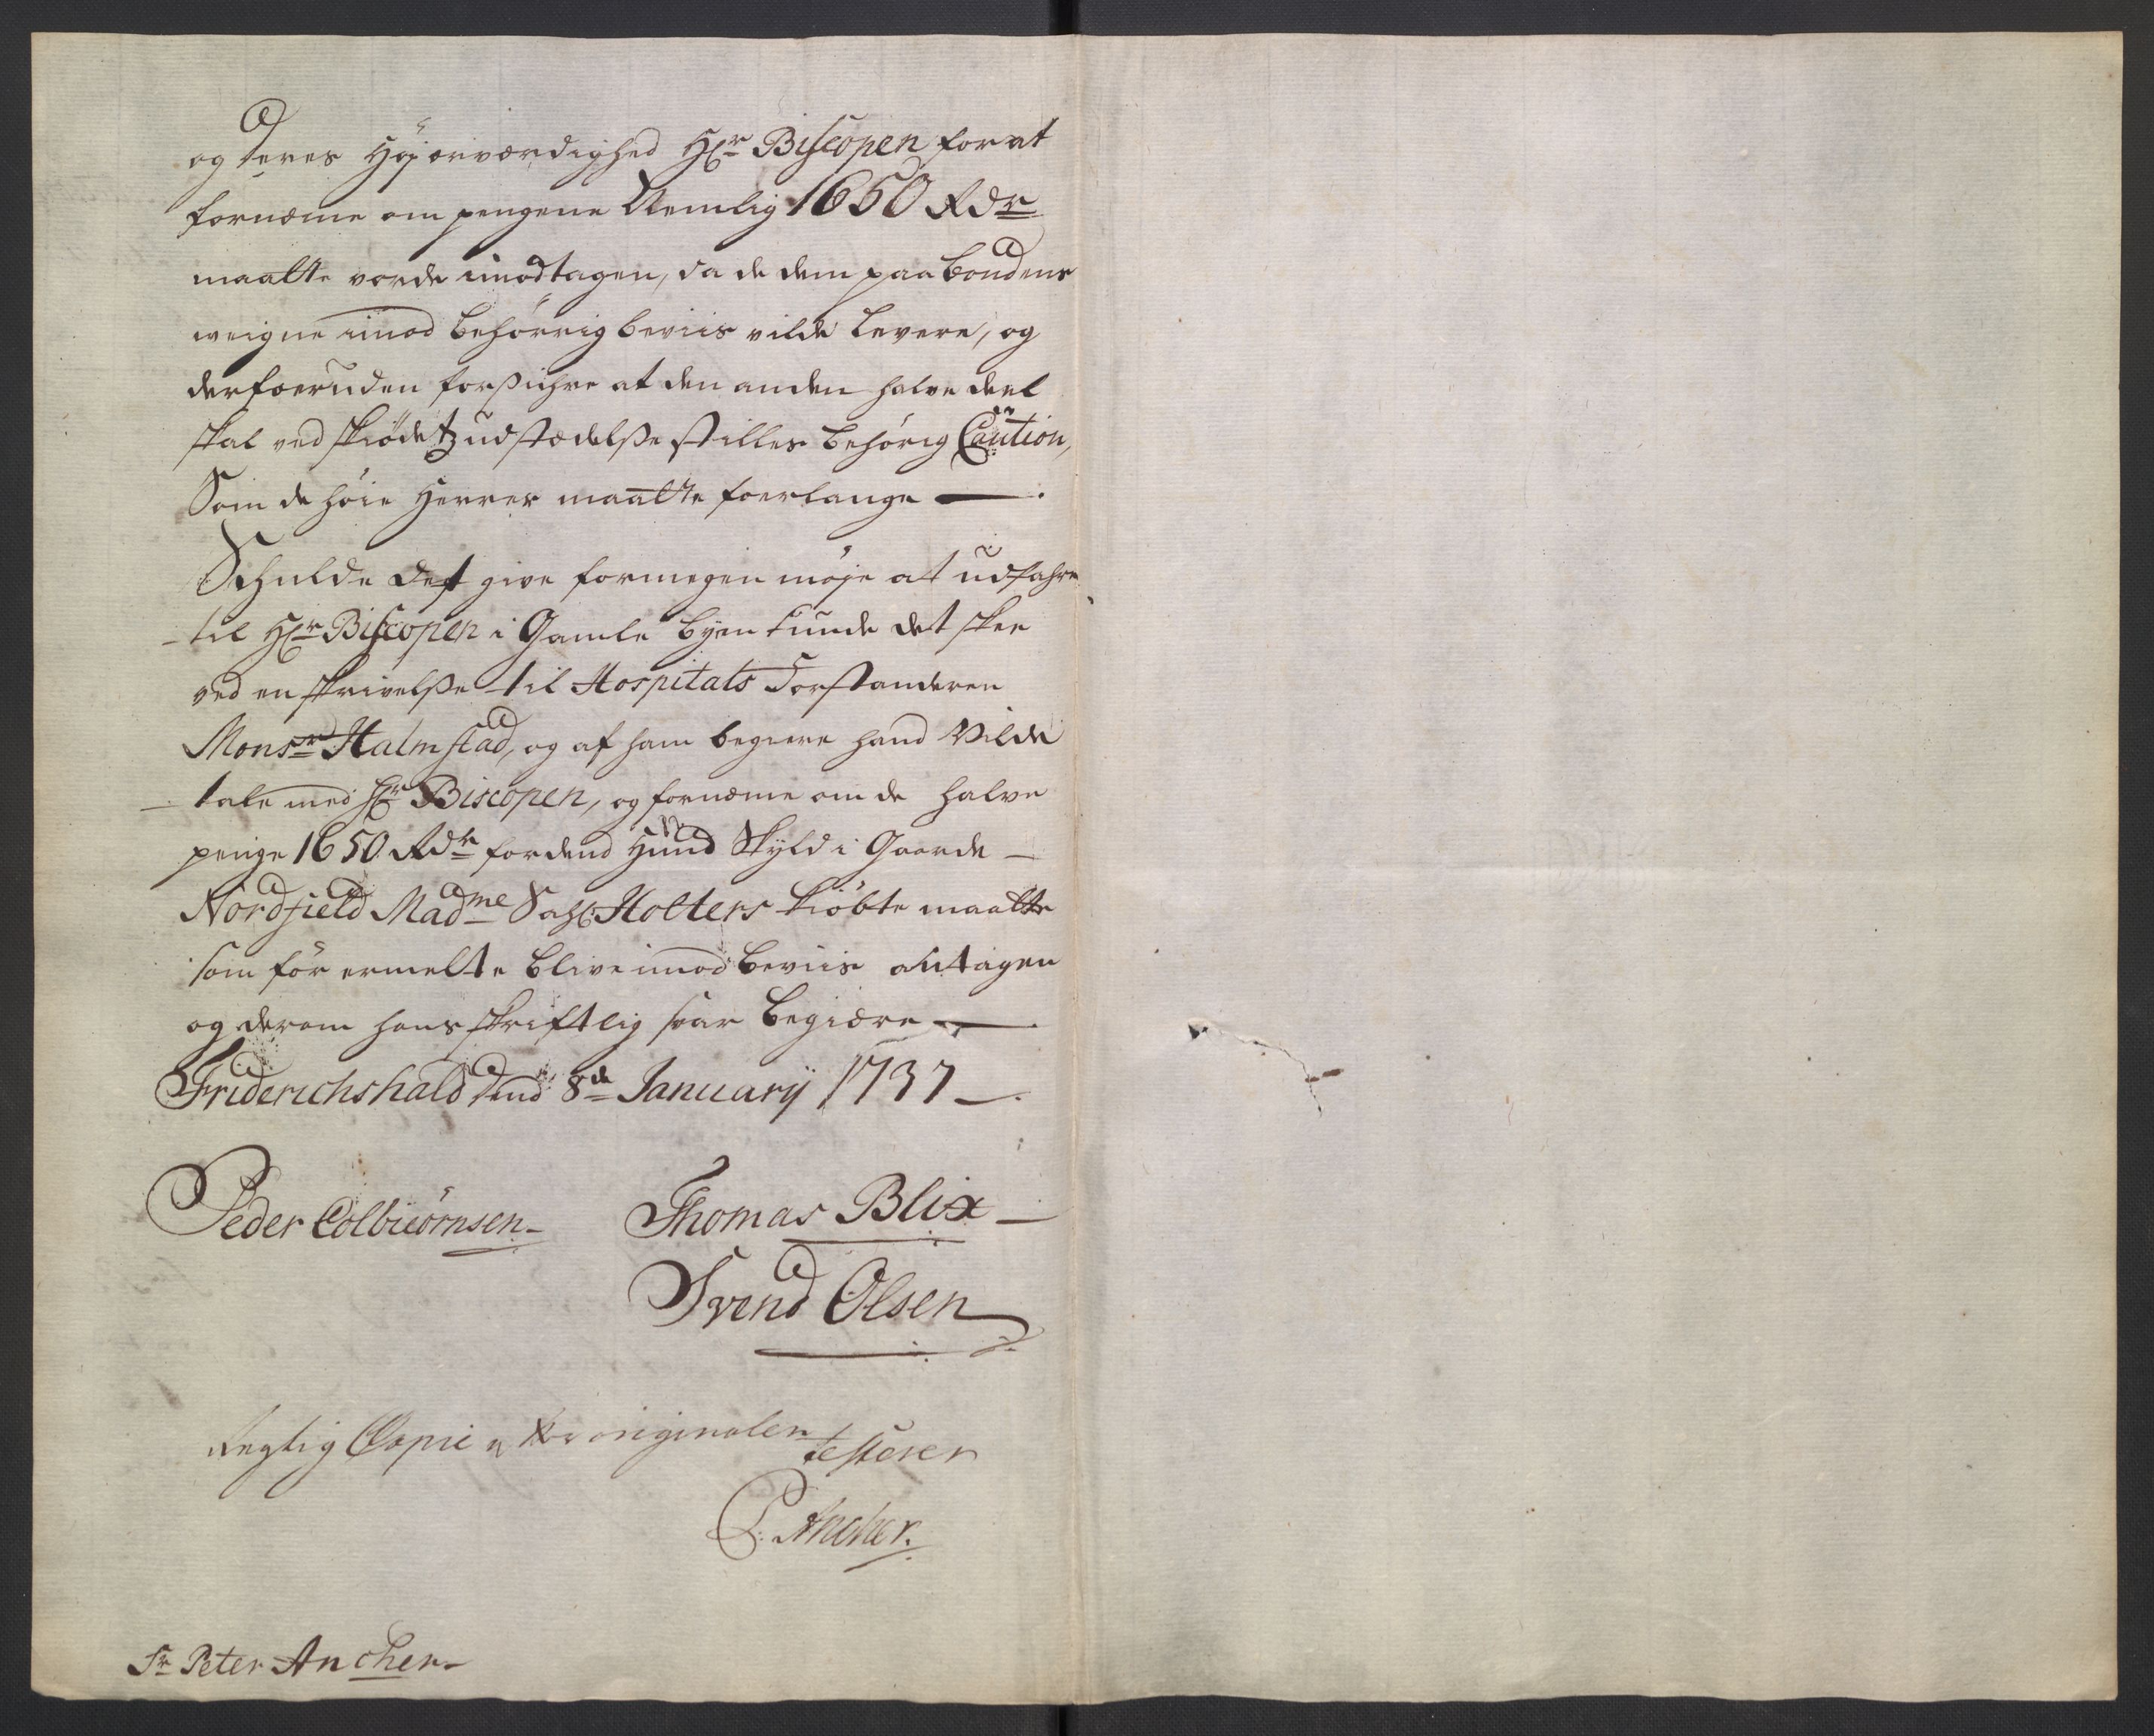 og deres Højærværdighed Hr Biscopen for at
fornæme om pengene Nemlig 1650 Rdr
maatte vorde imodtagen, da de dem paa bondens
weigne imod behørrig beviis vilde levere, og
derforuden forsichre at den anden halve deel
skal ved skiødetz udstædelsse stilles behørig Caution,
Som de høie Herrer maatte foerlange —.
Schulde det give formegen møje at udfahre
til Hr Biscopen i Gamle byen kunde det skee
ved en skrivelsse til Hospitals Forstanderen
Monsr Halmstad, og af ham begiere hand vilde
tale med Hr Biscopen, og fornæme om de halve
penge 1650 Rdr for dend Hund Skyld i Gaarde
Nordfield Madme Sahl: Holters kiøbte maatte
som før ermelte blive imod beviis antagen
og derom hans skriftlig svar begiære —
Friderichshald dend 8de January 1737 —.
Peder Colbiørnsen Thomas Blix —
Svend Olsen
Rigtig Copie af originalen testerer
P. Ancher.
Sr Peter Ancher